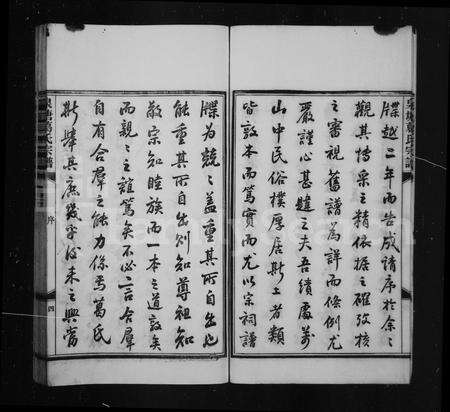 牒越二年而告成請序於余余
觀其搜采之精依據之確攷核
之審視舊譜爲詳而條例尤
嚴謹心甚韙之夫吾績處萬
山中民俗樸厚居斯土者類
皆敦本而篤實而尤以宗祠譜
牒爲兢兢蓋重其所自出也
能重其所自出則知尊祖知
敬宗知睦族而一本之道敦矣
而親親之誼篤矣不必言合羣
自有合羣之能力係焉葛氏
斯舉其庶幾乎後來之興當
葛氏宗譜
序
四